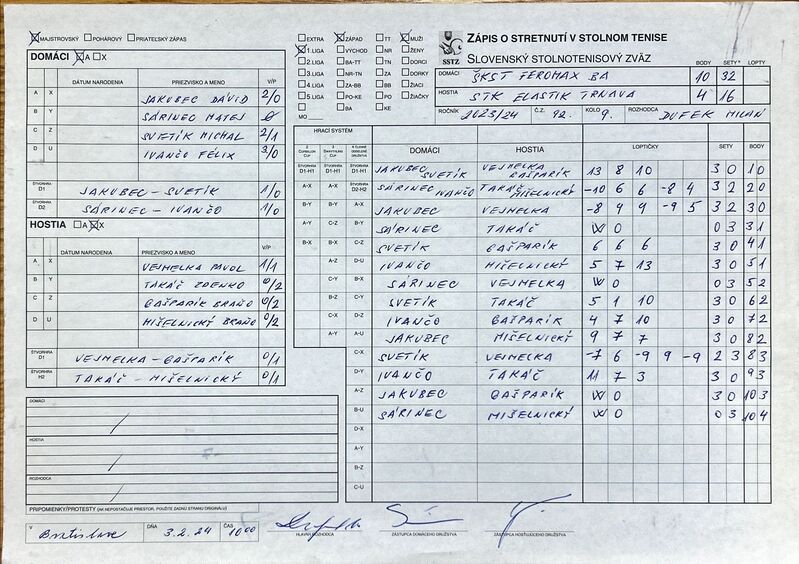 MAJSTROVSKÝ POHÁROVÝ PRIATEĽSKÝ ZÁPAS
DOMÁCI A X
DÁTUM NARODENIA PRIEZVISKO A MENO V/P
A X JAKUBEC DÁVID 2/0
B Y SÁRINEC MATEJ
C Z SVETÍK MICHAL 2/1
D U IVANČO FÉLIX 3/0
ŠTVORHRA D1 JAKUBEC – SVETÍK 1/0
ŠTVORHRA D2 SÁRINEC – IVANČO 1/0
HOSTIA A X
DÁTUM NARODENIA PRIEZVISKO A MENO V/P
A X VEJMELKA PAVOL 1/1
B Y TAKÁČ ZDENKO 0/2
C Z GAŠPARÍK BRAŇO 0/2
D U MIŠELNICKÝ BRAŇO 0/2
ŠTVORHRA D1 VEJMELKA – GAŠPARÍK 0/1
ŠTVORHRA H2 TAKÁČ – MIŠELNICKÝ 0/1
DOMÁCI
HOSTIA
ROZHODCA
PRIPOMIENKY/PROTESTY (AK NEPOSTAČUJE PRIESTOR, POUŽITE ZADNÚ STRANU ORIGINÁLU)
V Bratislave DŇA 3.2.24 ČAS 10 00
HLAVNÝ ROZHODCA ZÁSTUPCA DOMÁCEHO DRUŽSTVA ZÁSTUPCA HOSŤUJÚCEHO DRUŽSTVA
EXTRA ZÁPAD MUŽI
1.LIGA VÝCHOD NR ŽENY
2.LIGA BA-TT TN DORCI
3.LIGA NR-TN ZA DORKY
4.LIGA ZA-BB BB ŽIACI
5.LIGA PO-KE PO ŽIAČKY
BA KE
MO
SSTZ
ZÁPIS O STRETNUTÍ V STOLNOM TENISE
SLOVENSKÝ STOLNOTENISOVÝ ZVÄZ
BODY SETY LOPTY
DOMÁCI ŠKST FEROMAX BA 10 32
HOSTIA STK ELASTIK TRNAVA 4 16
ROČNÍK 2023/24 Č.Z. 92. KOLO 9. ROZHODCA DUFEK MILAN
HRACÍ SYSTÉM
DOMÁCI HOSTIA LOPTIČKY SETY BODY
ŠTVORHRA D1-H1 ŠTVORHRA D1-H1 ŠTVORHRA D1-H1 JAKUBEC SVETÍK VEJMELKA GAŠPARÍK 13 8 10 3 0 1 0
A-X A-X ŠTVORHRA D2-H2 SÁRINEC IVANČO TAKÁČ MIŠELNICKÝ -10 6 6 -8 4 3 2 2 0
B-Y B-Y A-X JAKUBEC VEJMELKA -8 9 9 -9 5 3 2 3 0
A-Y C-Z B-Y SÁRINEC TAKÁČ W 0 0 3 3 1
B-X B-X C-Z SVETÍK GAŠPARÍK 6 6 6 3 0 4 1
A-Z D-U IVANČO MIŠELNICKÝ 5 7 13 3 0 5 1
C-Y B-X SÁRINEC VEJMELKA W 0 0 3 5 2
B-Z C-Y SVETÍK TAKÁČ 5 1 10 3 0 6 2
C-X D-Z IVANČO GAŠPARÍK 4 7 10 3 0 7 2
A-Y A-U JAKUBEC MIŠELNICKÝ 9 7 7 3 0 8 2
C-X SVETÍK VEJMELKA -7 6 -9 9 -9 2 3 8 3
D-Y IVANČO TAKÁČ 11 7 3 3 0 9 3
A-Z JAKUBEC GAŠPARÍK W 0 3 0 10 3
B-U SÁRINEC MIŠELNICKÝ W 0 0 3 10 4
D-X
A-Y
B-Z
C-U